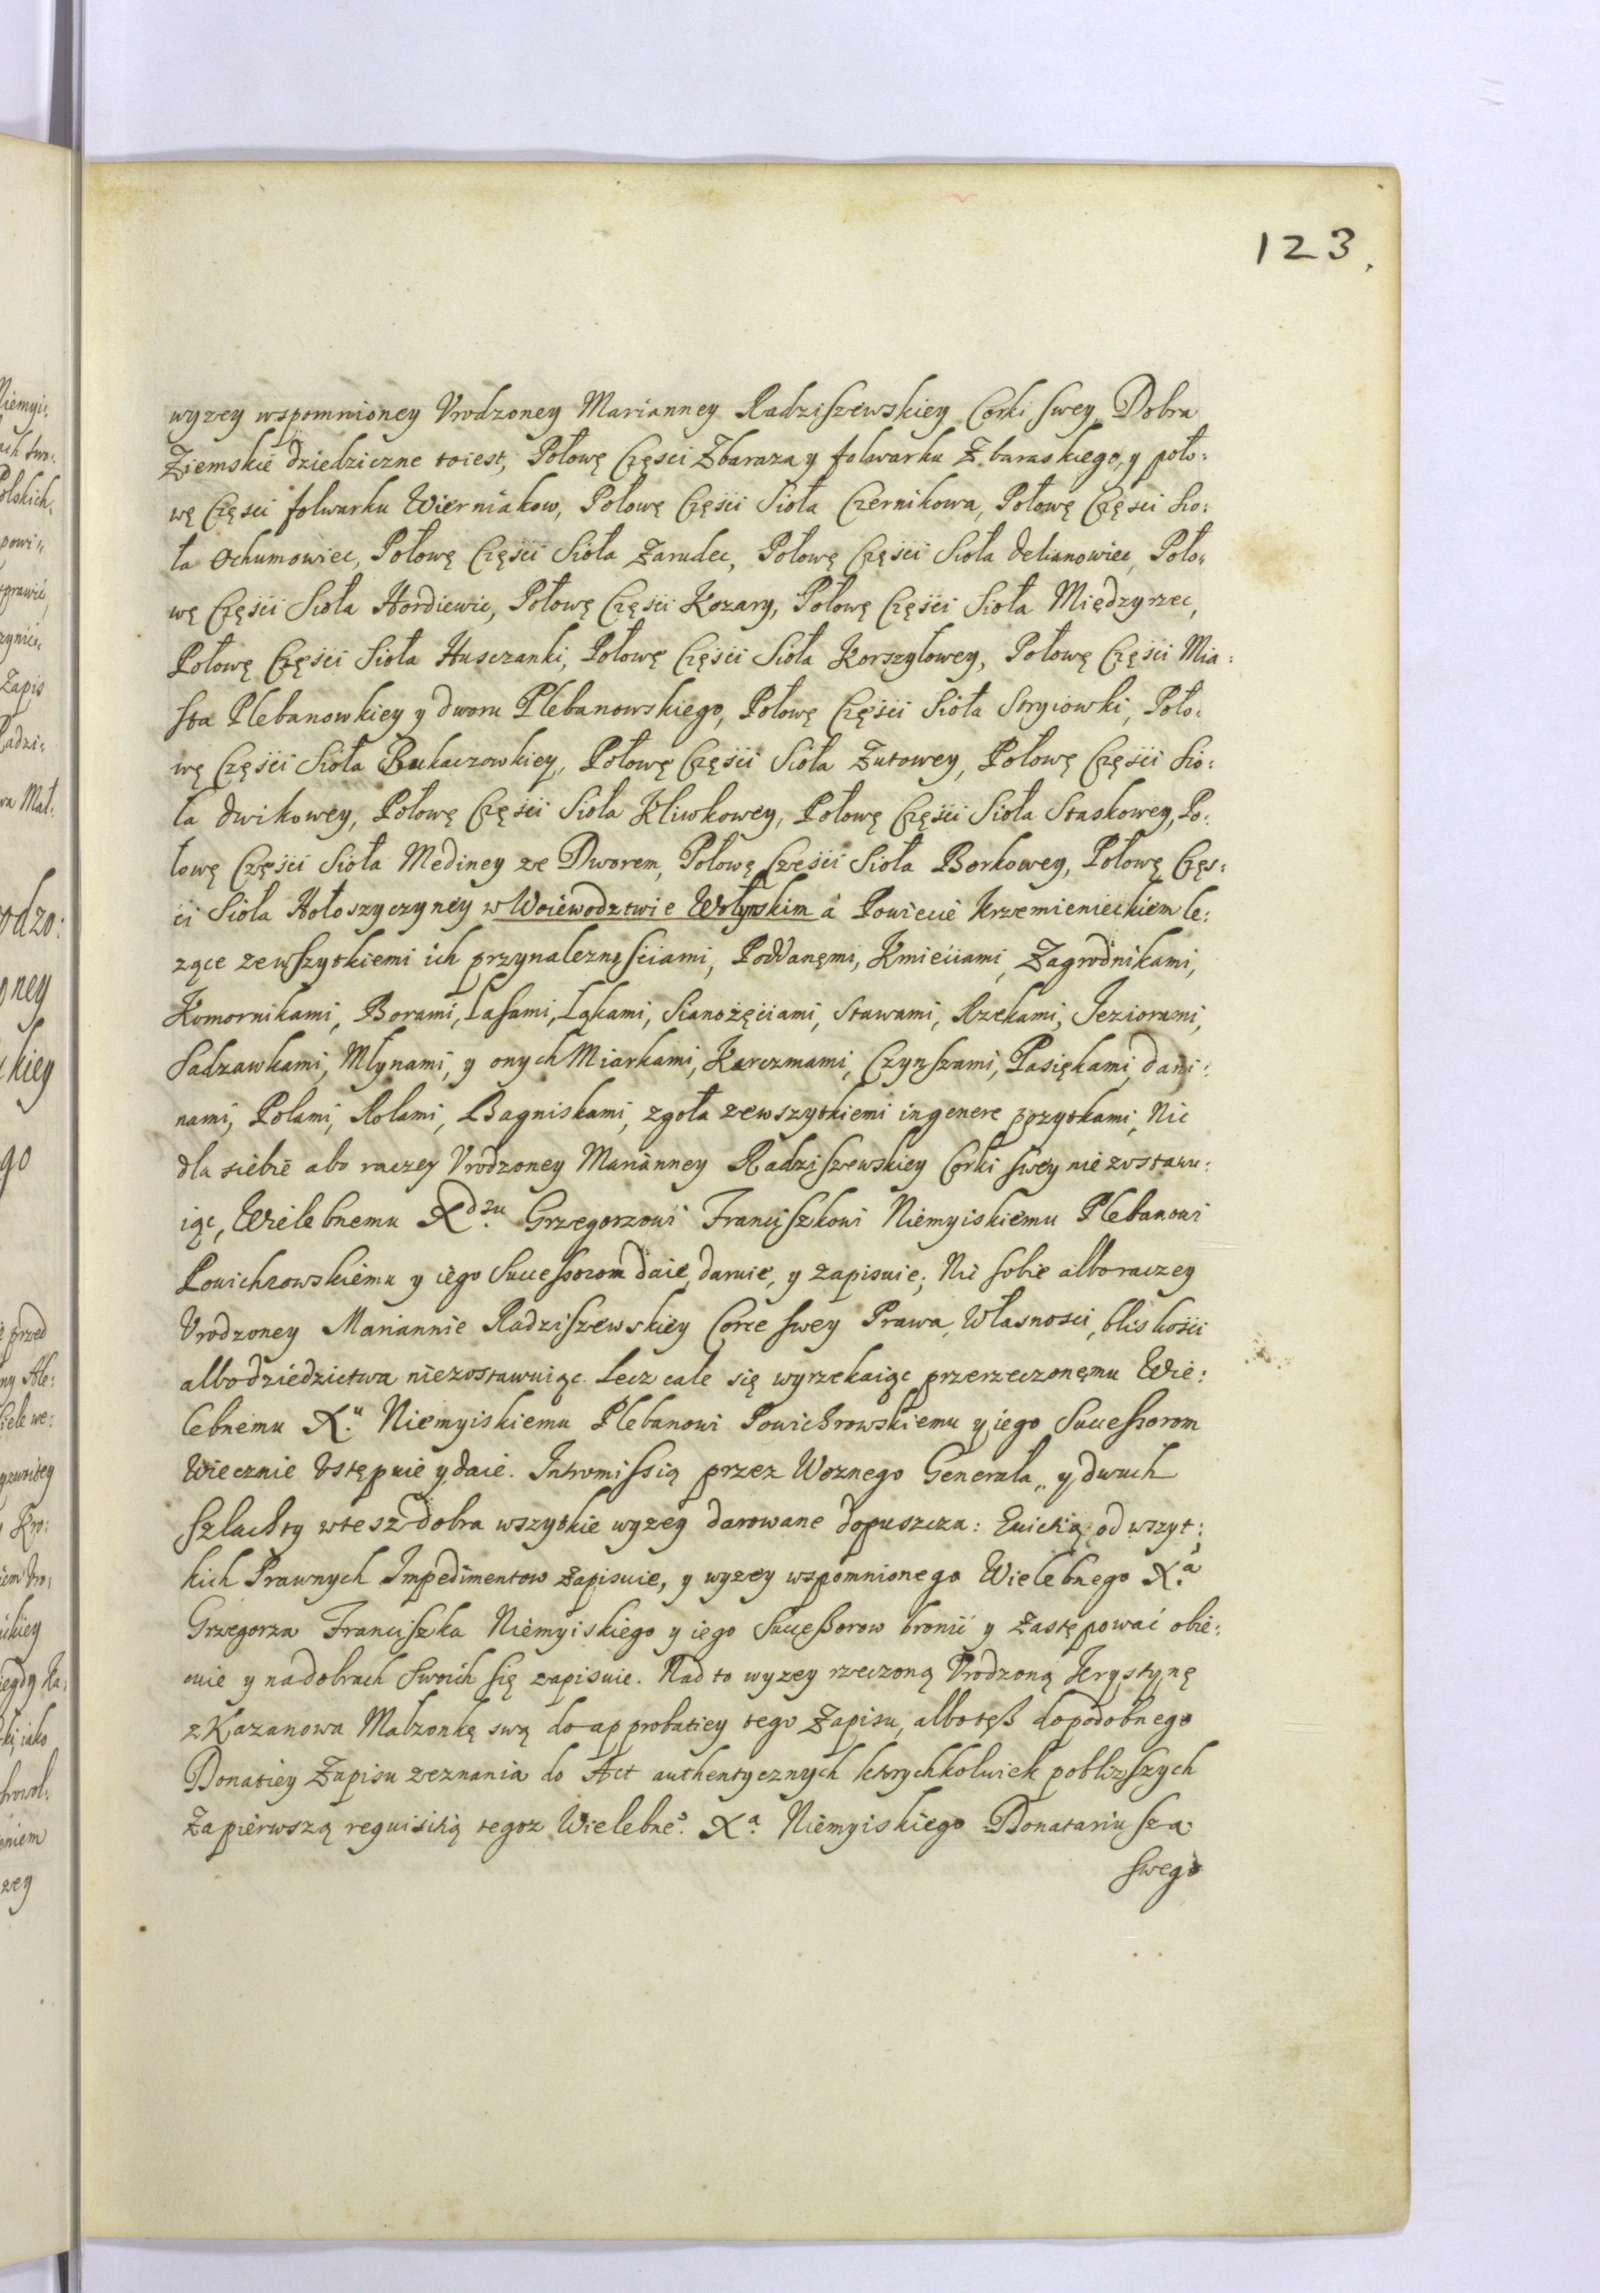 123.
wyzey wspomnioney Vrodzoney Marianney Radziszewskiey Corki swey, Dobra
Ziemskie dziedziczne toiest, Połowę Części Zbaraza y folwarku Zbaraskiego, y poło:
wę Części folwarku Wierniakow, Połowę Części Sioła Czernikowa, Połowę Części Sio:
ła Ochumowiec, Połowę Części Sioła Zarudec, Połowę Części Sioła Delianowiec, Poło:
wę Części Sioła Hordiewic, Połowę Części Kozary, Połowę Części Sioła Międzyrzec,
Połowę Części Sioła Husczanki, Połowę Części Sioła Korszyłowey, Połowę Części Mia:
sta Plebanowkiey y dworu Plebanowskiego, Połowę Części Sioła Stryiowki, Poło:
wę Części Sioła Bukaczowkiey, Połowę Części Sioła Zutowey, Połowę Części Sio:
ła Dwikowey, Połowę Części Sioła Kliwkowey, Połowę Części Sioła Staskowey, Po:
łowę Części Sioła Mediney ze Dworem, Połowę Części Sioła Borkowey, Połowę Częs:
ci Sioła Hołoszyczyney w Woiewodztwie Wołynskim á Powiecie Krzemienieckiem le:
zące zewszytkiemi ich przynaleznosciami, Poddanęmi, Kmieciami, Zagrodnikami,
Komornikami, Borami, Lasami, Ląkami, Sianożęciami, Stawami, Rzekami, Ieziorami,
Sadzawkami, Młynami, y onych Miarkami, Karczmami, Czynszami, Pasiękami, dani:
nami, Polami, Rolami, Bagniskami, zgoła zewszytkiemi ingenere pozytkami, Nic
dla siebie abo raczey Vrodzoney Marianney Radziszewskiey Corki swey niezostawu:
iąc, Wielebnemu Xdzu Grzegorzowi Franciszkowi Niemyiskiemu Plebanowi
Powichrowskiemu y iego Successorom daie, daruie, y zapisuie; Nic sobie alboraczey
Vrodzoney Mariannie Radziszewskiey Corce swey Prawa, Własnosci, bliskości
albodziedzictwa niezostawuiąc. Lecz cale się wyrzekaiąc przerzeczonęmu Wie:
lebnemu X.u Niemyiskiemu Plebanowi Powichrowskiemu y iego Successorom
Wiecznie Vstępuie y daie. Intromissią przez Woznego Generała, y dwuch
Szlachty wtesz dobra wszytkie wyzey darowane dopuszcza: Euictią od wszyt:
kich Prawnych Impedimentow zapisuie, y wyzey wspomnionego Wielebnego X.a
Grzegorza Franciszka Niemyiskiego y iego Successorow bronić y Zastępować obie:
cuie y nadobrach Swoich się zapisuie. Nad to wyzey rzeczoną Vrodzoną Krystynę
z Kazanowa Malzonkę swą do approbatiey tego Zapisu, albotęsz dopodobnego
Donatiey Zapisu zeznania do Act authentycznych ktorychkolwiek poblizszych
Za pierwszą requisitią tegoz Wielebne.o X.a Niemyiskiego Donatariusza
swego